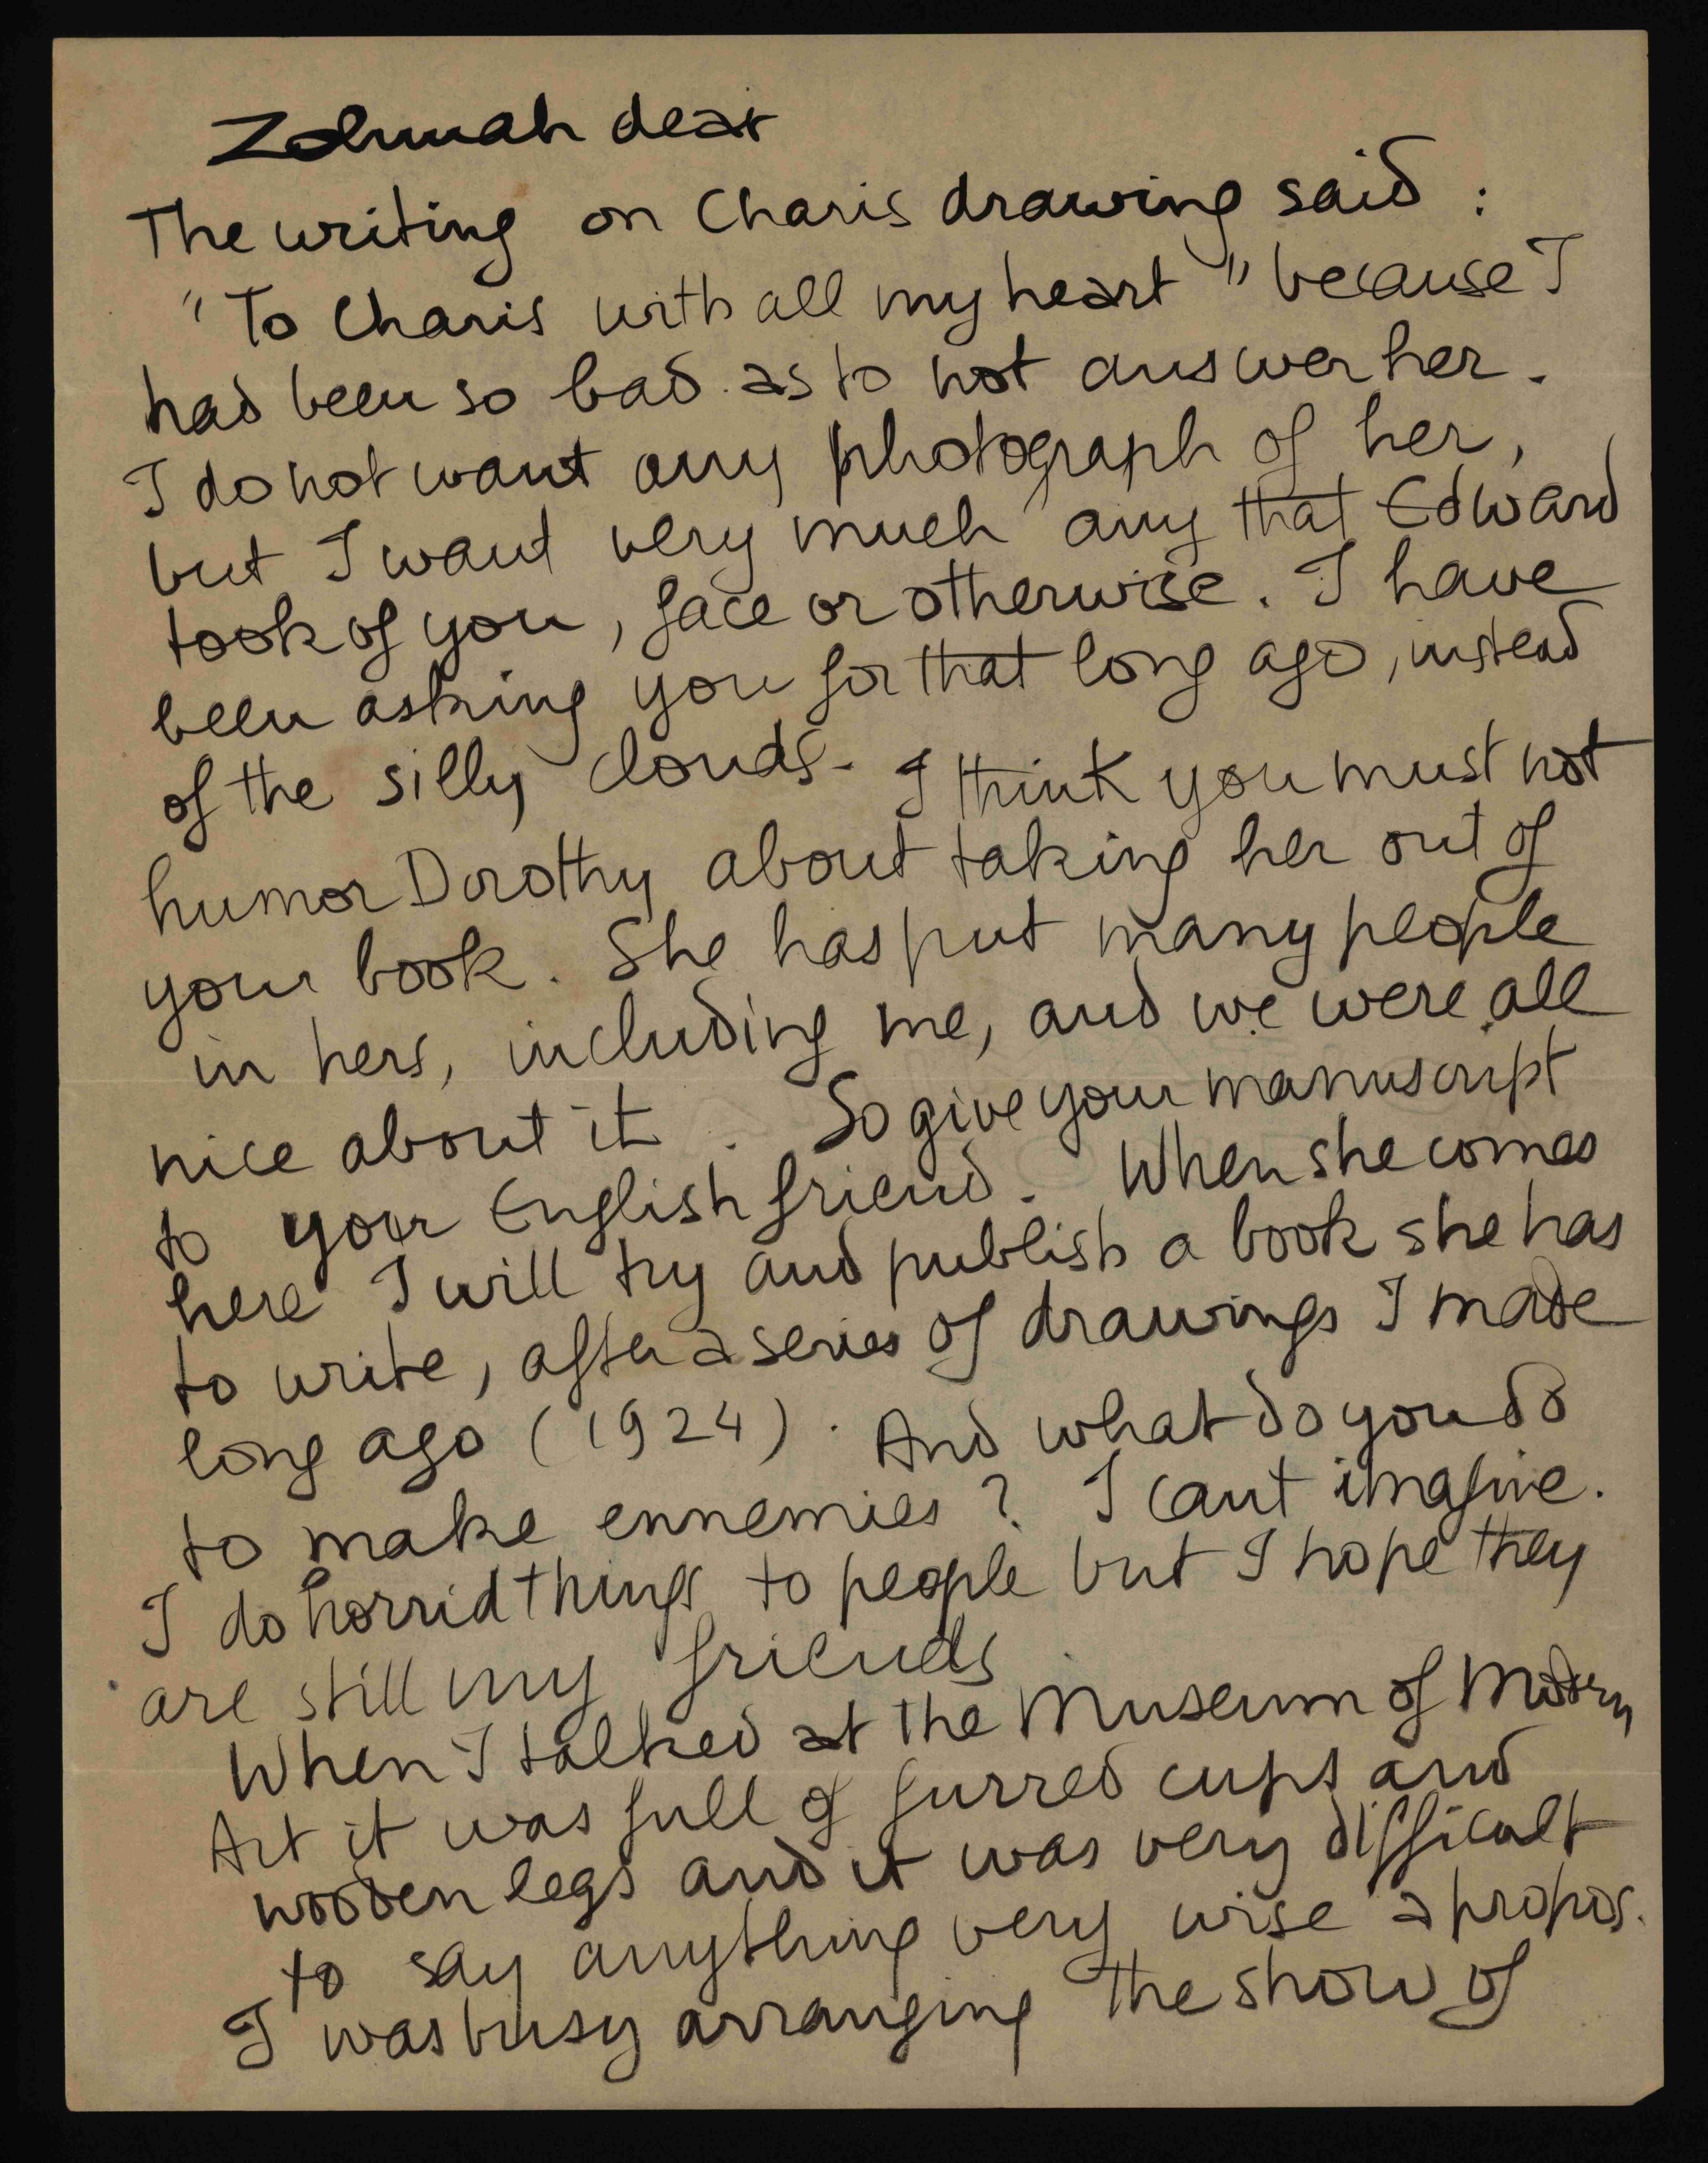 Zohmah dear
The writing on Charis drawing said :
"To Charis with all my heart" because I
had been so bad as to not answer her.
I do not want any photograph of her,
but I want very much any that Edward
took of you, face or otherwise. I have
been asking you for that long ago, instead
of the silly clouds. I think you must not
humor Dorothy about taking her out of
your book. She has put many people
in hers, including me, and we were all
nice about it. So give your manuscript
to your English friend. When she comes
here I will try and publish a book she has
to write, after a series of drawings I made
long ago (1924). And what do you do
to make ennemies? I cant imagine.
I do horrid things to people but I hope they
are still my friends.
When I talked at the Museum of Modern
Art it was full of furred cups and
wooden legs and it was very difficult
to say anything very wise apropos.
I was busy arranging the show of